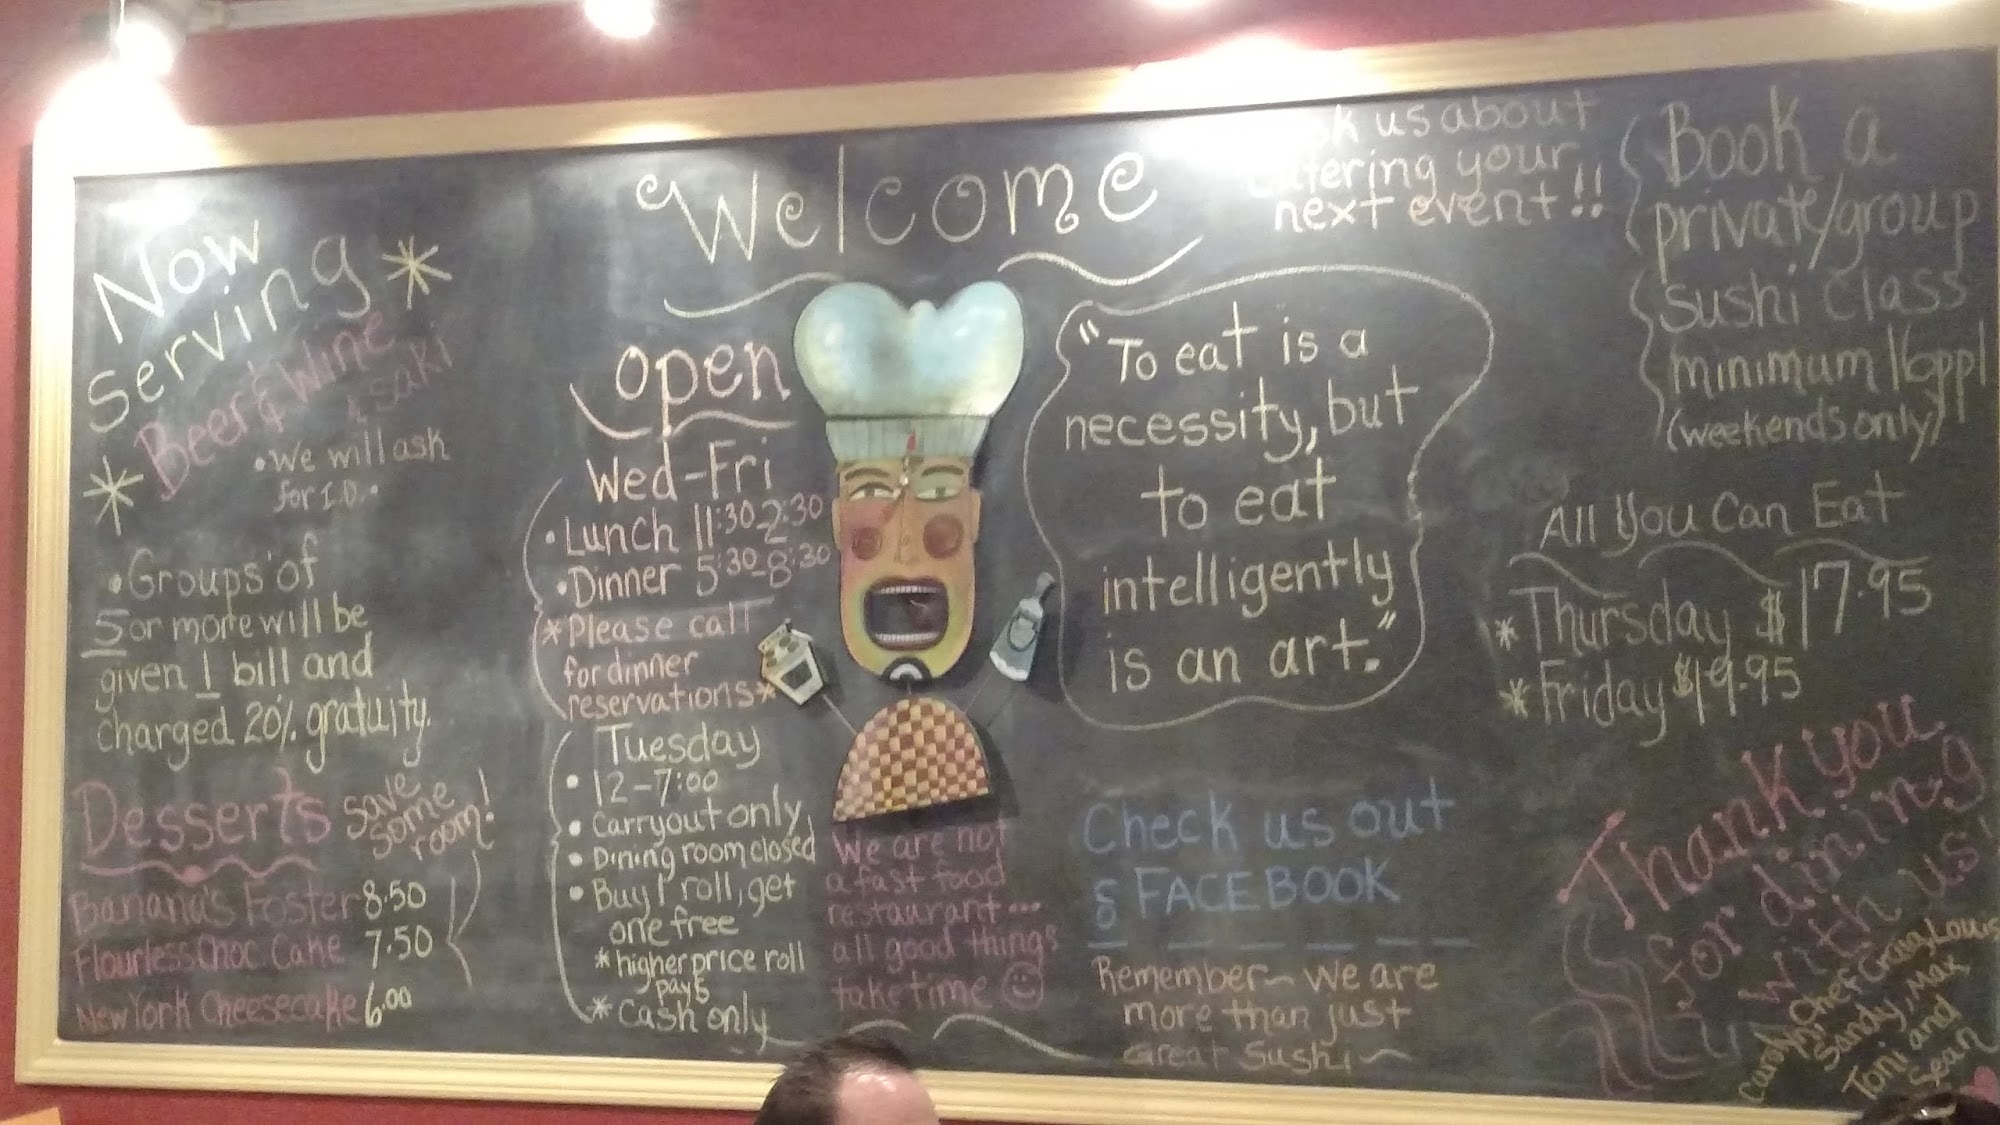 Welcome
Now
Serving
Beer & Wine
& Saki
• We will ask
for I.D. •
• Groups of
5 or more will be
given 1 bill and
charged 20% gratuity.
Desserts
Save
some
room!
Banana's Foster 8.50
Flourless Choc. Cake 7.50
New York Cheesecake 6.00
open
Wed-Fri
• Lunch 11:30-2:30
• Dinner 5:30-8:30
*Please call
for dinner
reservations*
Tuesday
• 12-7:00
• Carryout only
• Dining room closed
• Buy 1 roll, get
one free
*higher price roll
pays
* Cash only
We are not
a fast food
restaurant...
all good things
take time
"To eat is a
necessity, but
to eat
intelligently
is an art."
Check us out
FACEBOOK
Remember~ We are
more than just
Great Sushi~
us about
catering your
next event!!
Book a
private/group
sushi class
minimum 16ppl
(weekends only)
All You Can Eat
* Thursday $17.95
* Friday $19.95
Thank you
for dining
with us!
Chef Craig, Louis
Sandy, Max,
Toni and
Sean